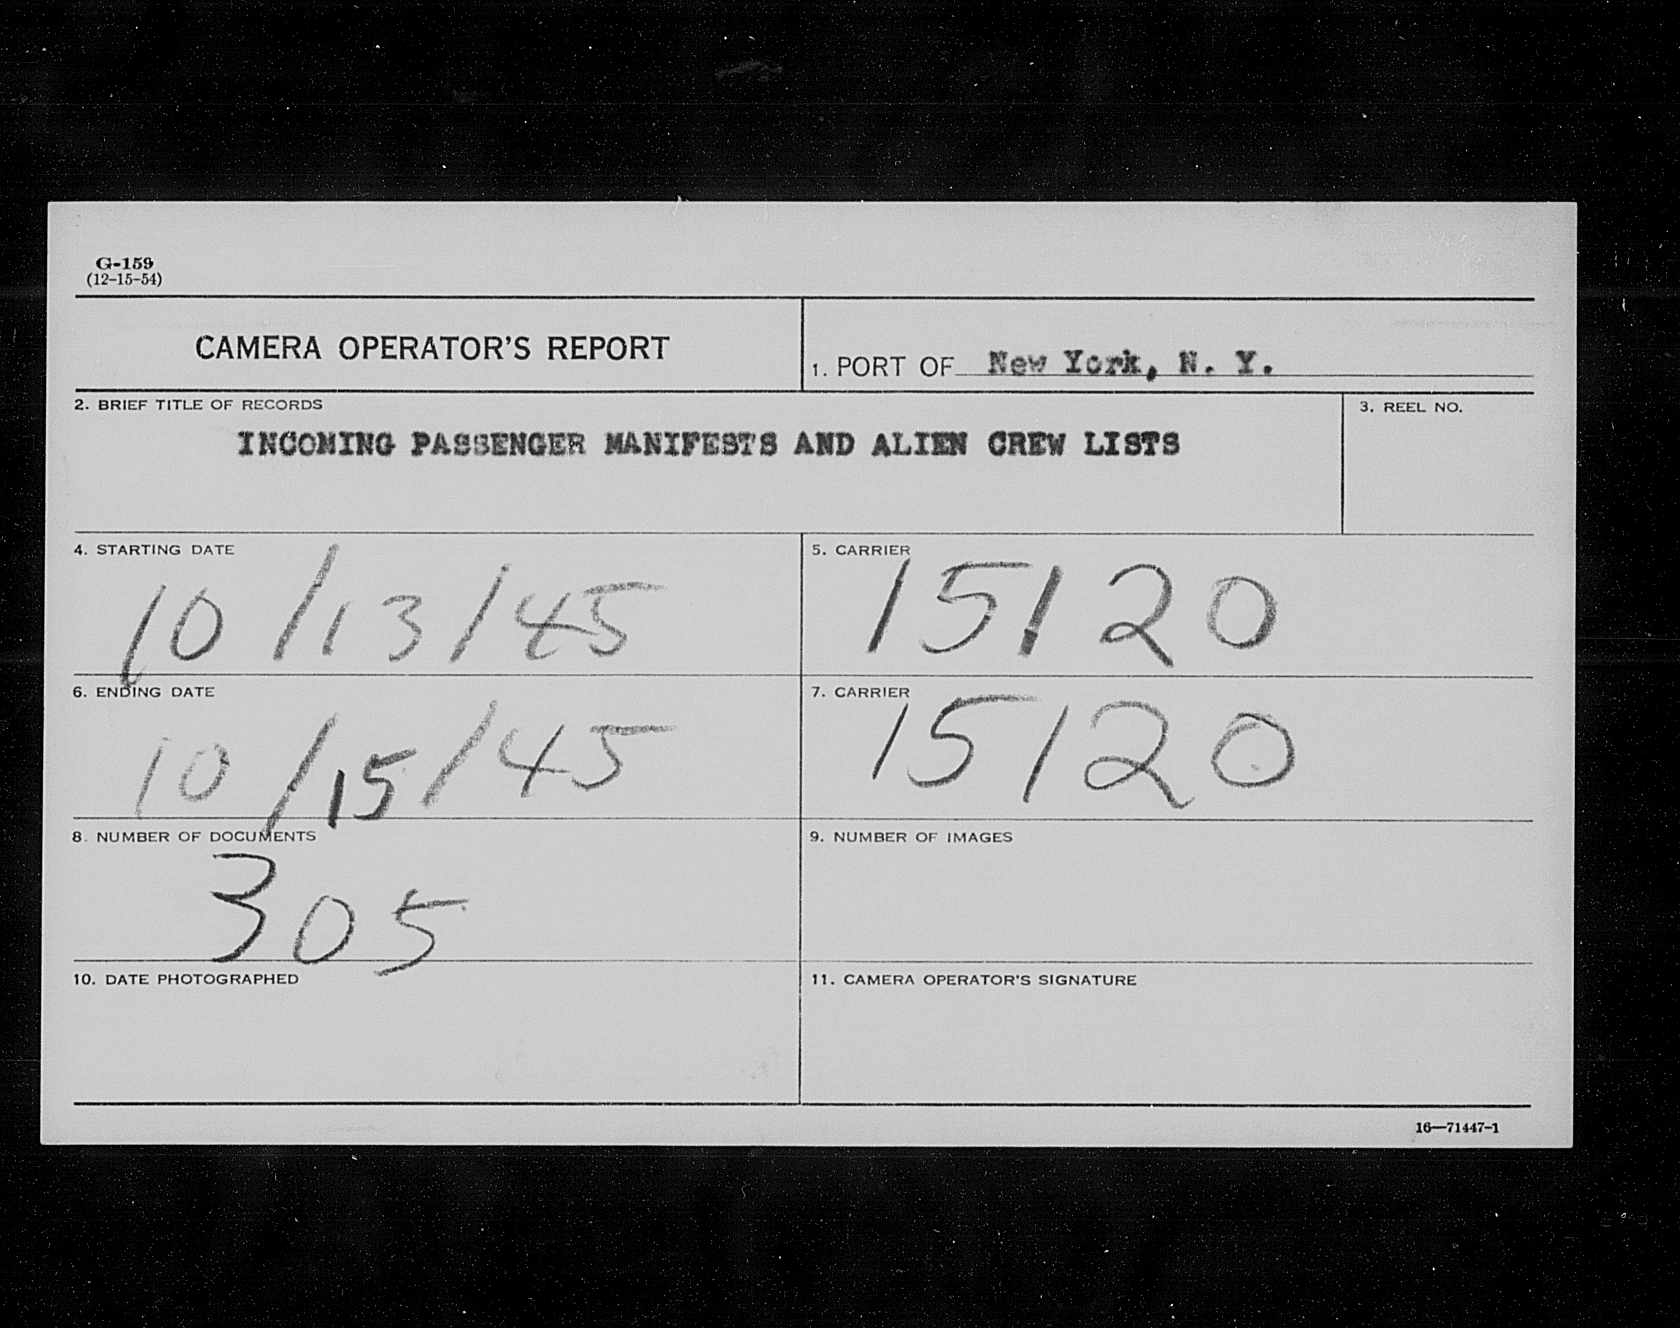 G-159
(12-15-54)
CAMERA OPERATOR'S REPORT
1. PORT OF New York, N. Y.
2. BRIEF TITLE OF RECORDS
INCOMING PASSENGER MANIFESTS AND ALIEN CREW LISTS
3. REEL NO.
4. STARTING DATE
10/13/45
5. CARRIER
15120
6. ENDING DATE
10/15/45
7. CARRIER
15120
8. NUMBER OF DOCUMENTS
305
9. NUMBER OF IMAGES
10. DATE PHOTOGRAPHED
11. CAMERA OPERATOR'S SIGNATURE
16—71447-1